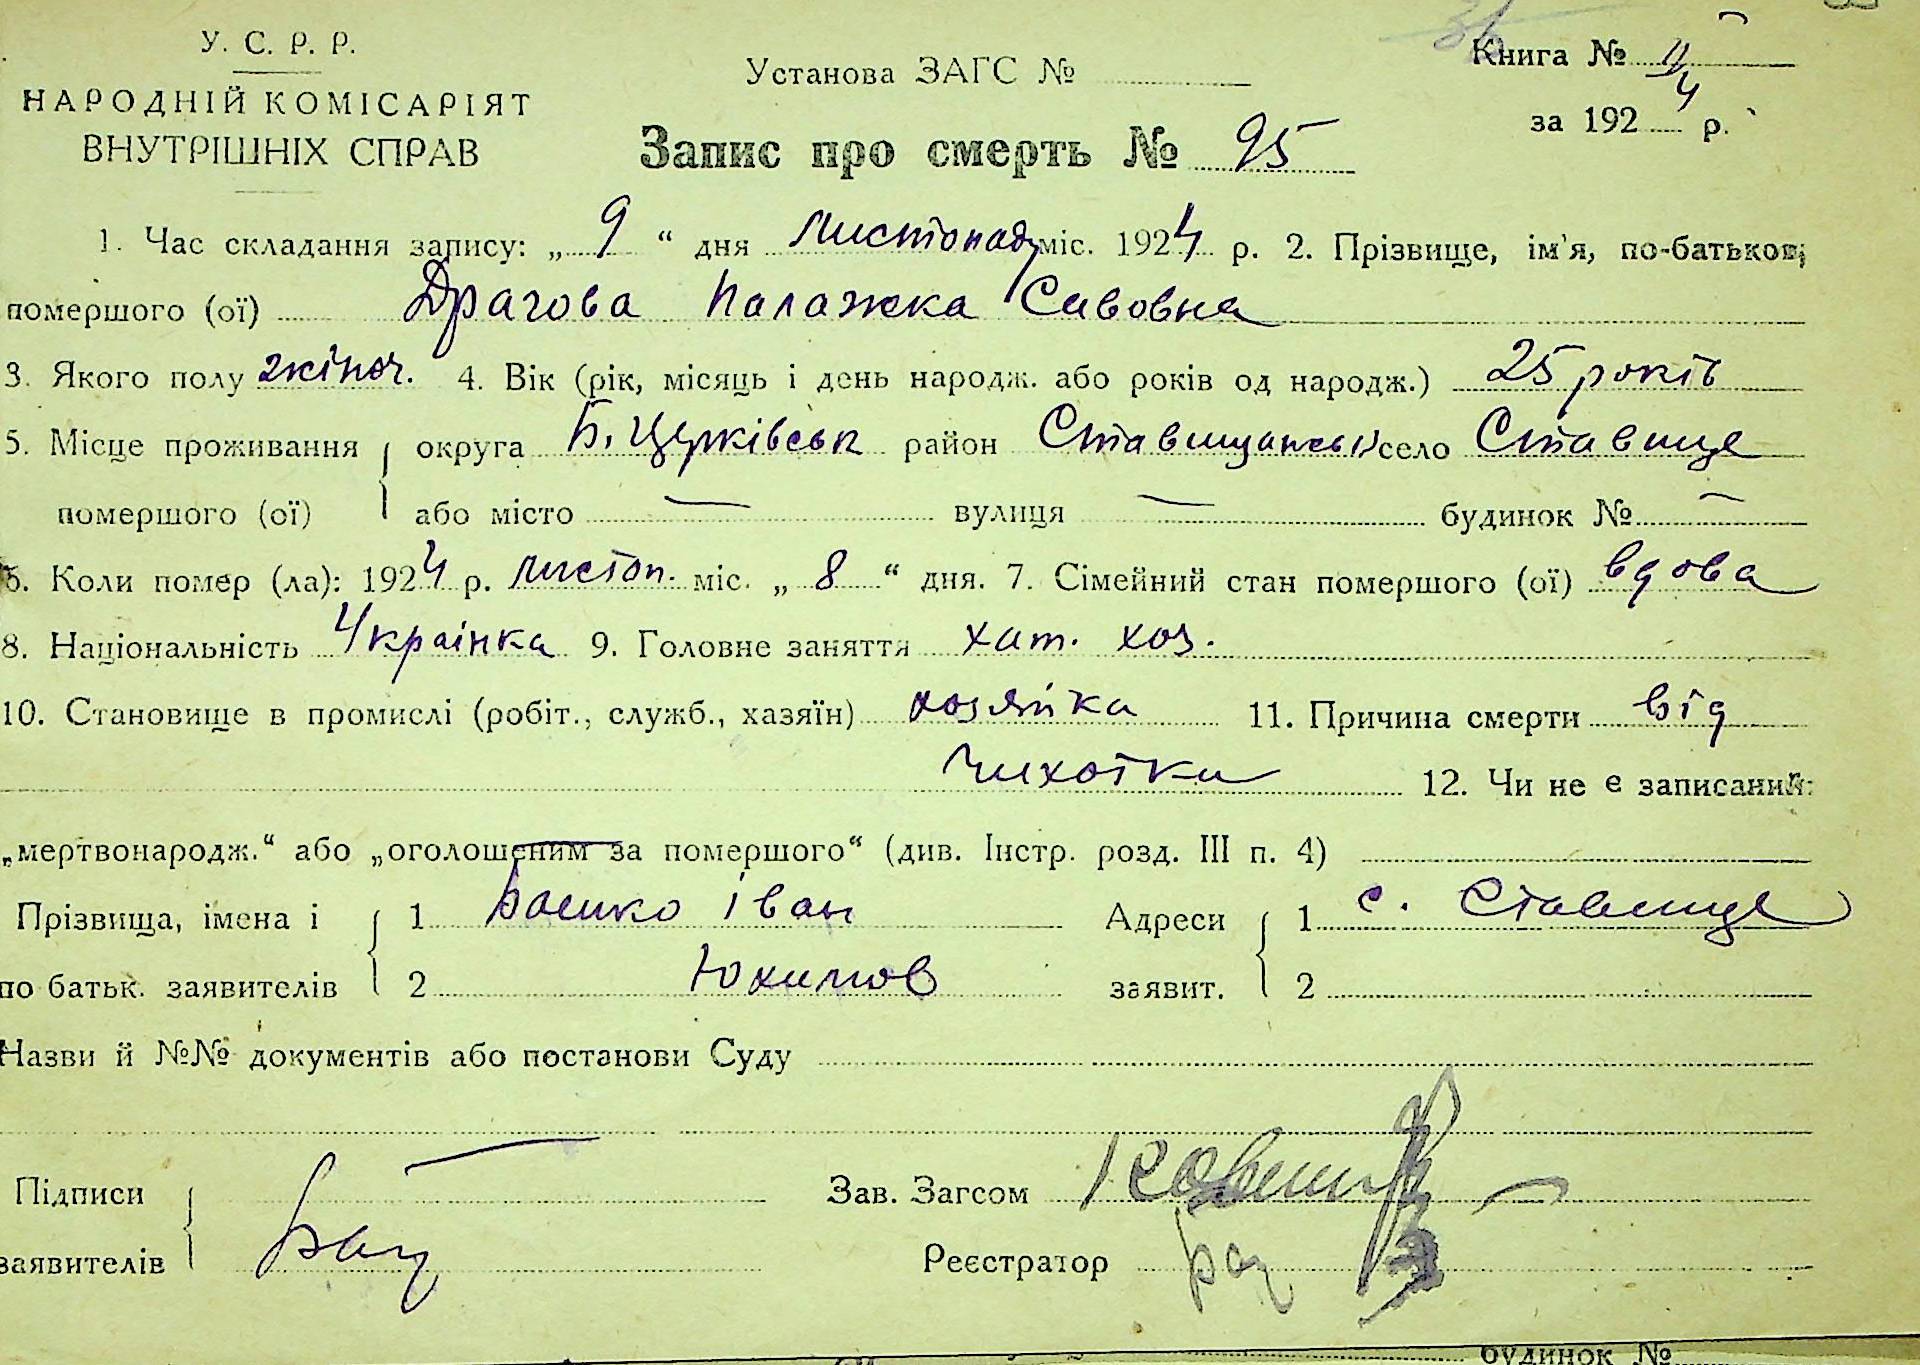 У. С. Р. Р.
НАРОДНІЙ КОМІСАРІЯТ
ВНУТРІШНІХ СПРАВ
Установа ЗАГС №
Книга № II
за 1924 р.
Запис про смерть № 95
1. Час складання запису: „ 9 “ дня листопаду міс. 1924 р. 2. Прізвище, ім'я, по-батькові
помершого (ої) Драгова Палажка Савовна
3. Якого полу жіноч. 4. Вік (рік, місяць і день народж. або років од народж.) 25 років
5. Місце проживання округа Б. Церківськ район Ставищанськ село Ставище
помершого (ої) або місто — вулиця — будинок № —
6. Коли помер (ла): 1924 р. листоп. міс. „ 8 “ дня. 7. Сімейний стан помершого (ої) вдова
8. Національність Українка 9. Головне заняття хат. хоз.
10. Становище в промислі (робіт., служб., хазяїн) хозяйка 11. Причина смерти від
чихотки 12. Чи не є записаний:
„мертвонародж.“ або „оголошеним за помершого“ (див. Інстр. розд. III п. 4)
Прізвища, імена і 1 Іван Адреси 1 с. Ставище
по батьк. заявителів 2 Юхимов заявит. 2
Назви й №№ документів або постанови Суду
Підписи Зав. Загсом
заявителів Реєстратор
будинок №